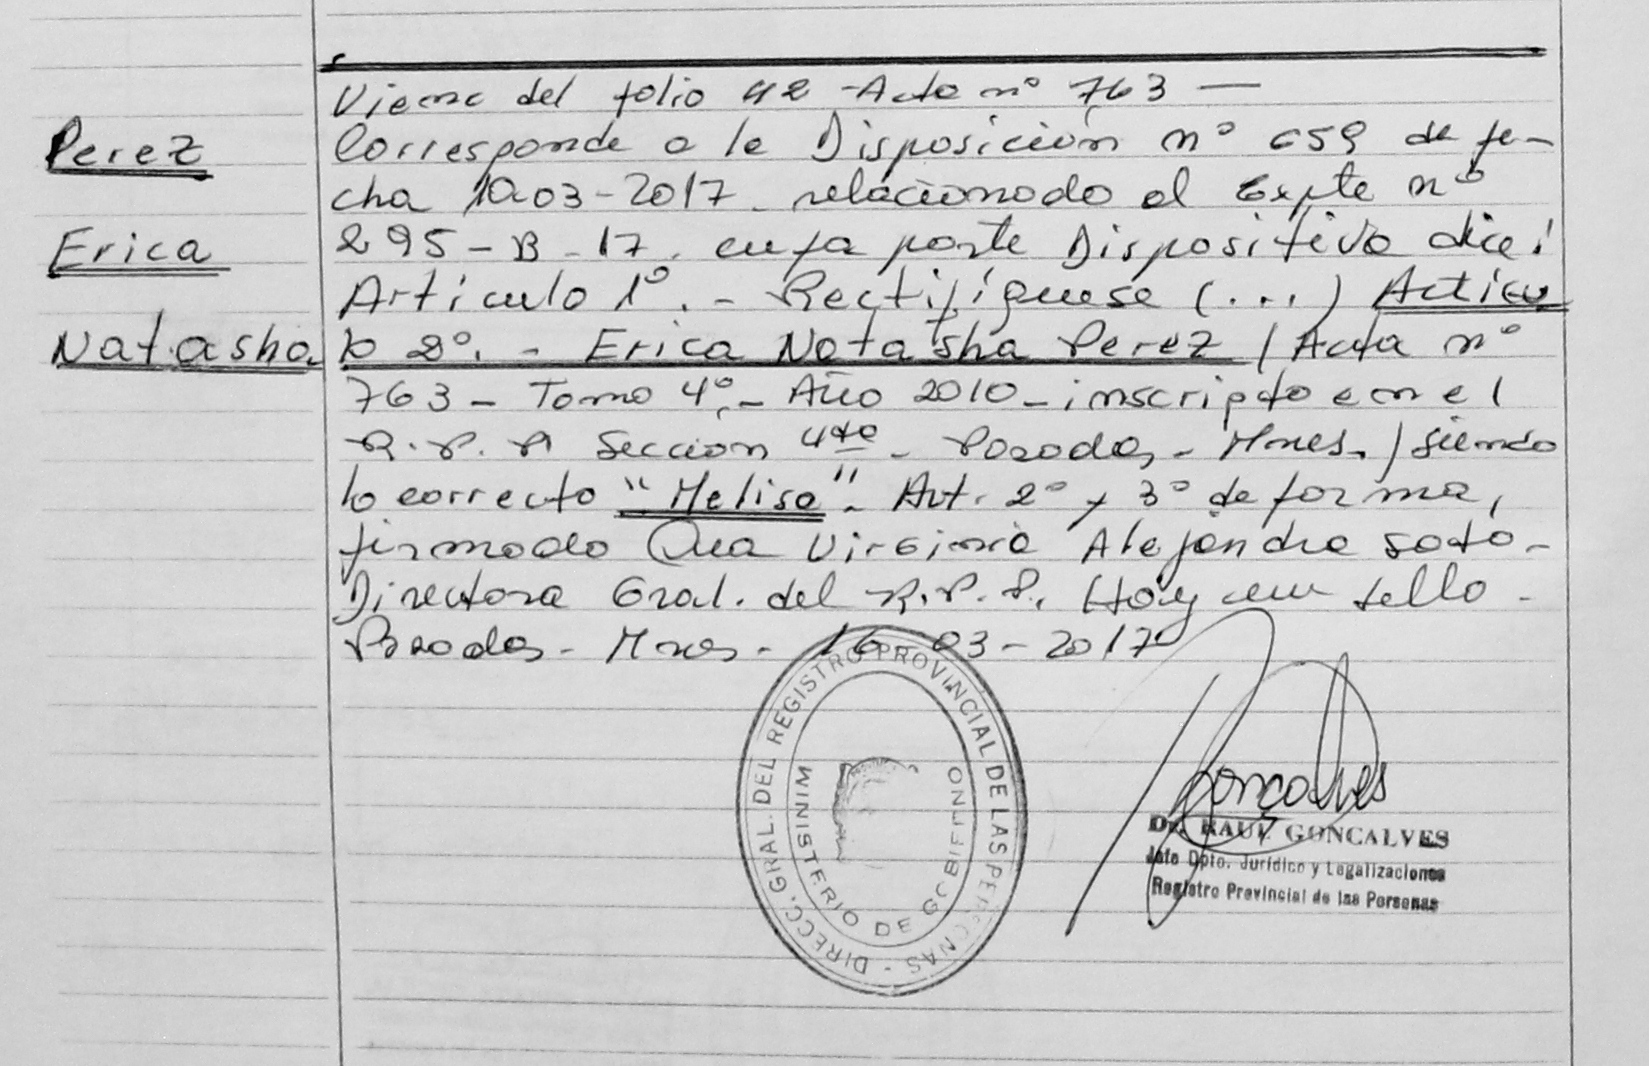 Viene del folio 42 - Acta nº 763 —
Perez
Corresponde a la Disposición nº 659 de fe-
cha 10-03-2017. relacionado al Expte nº
Erica
295-B-17. cuya parte Dispositiva dice:
Artículo 1º. - Rectifíquese (...) Artícu
Natasha
lo 2º. - Erica Natasha Perez / Acta nº
763 - Tomo 4º - Año 2010 - inscripto en el
R.P.P. Sección 4ta - Posadas - Mnes. / siendo
lo correcto "Melisa". Art. 2º y 3º de forma,
firmado Dra Virginia Alejandra Soto -
Directora Gral. del R.P.P. Hay un sello -
Posadas - Mnes - 16-03-2017
DIRECC. GRAL. DEL REGISTRO PROVINCIAL DE LAS PERSONAS -
MINISTERIO DE GOBIERNO
Goncalves
Dr. RAUL GONCALVES
Jefe Dpto. Jurídico y Legalizaciones
Registro Provincial de las Personas